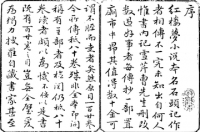 序
紅樓夢小說本名石頭記作
者相傳不一究未知出自何人
惟書內記雪芹曹先生刪改
數過好事者每傳抄一部置
廟市中昂其值得數十金可
謂不脛而走者矣然原目一百廿卷
今所傳祗八十卷殊非全本即間
稱有全部者及檢閱仍祗八十
卷讀者頗以為憾不佞以是書
既有百廿卷之目豈無全璧爰
為竭力搜羅自藏書家甚至